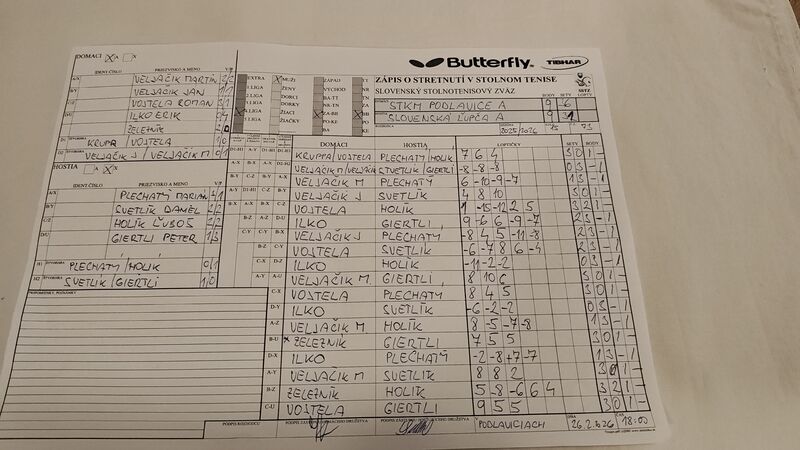 DOMACI X A X
Butterfly TIBHAR
IDENT. ČÍSLO PRIEZVISKO A MENO V/P
ZÁPIS O STRETNUTÍ V STOLNOM TENISE
SLOVENSKÝ STOLNOTENISOVÝ ZVÄZ
BODY SETY LOPTY
A/X VELJAČIK MARTIN 2/2
B/Y VELJAČIK JÁN 1/1
C/Z VOJTELA ROMAN 3/1
D/U ILKO ERIK
ŽELEZNÍK 2/0
D1 KRUPA VOJTELA 1/0
D2 VELJAČIK J / VELJAČIK M 0/1
EXTRA X MUŽI ZÁPAD TT
1.LIGA ŽENY VÝCHOD NR
2.LIGA DORCI BA-TT TN
3.LIGA DORKY NK-TN ZA
ŽIACI X ZA-BB BB
ŽIAČKY PO-KE PO
BA KE
STKM PODLAVICE A
SLOVENSKÁ ĽUPČA A
2025/2026
HOSTIA A X
IDENT. ČÍSLO PRIEZVISKO A MENO V/P
A/X PLECHATÝ MARIAN
B/Y SVETLÍK DANIEL 2/2
C/Z HOLÍK ĽUBOŠ 2/2
D/U GIERTLI PETER 1/3
H1 PLECHATÝ / HOLÍK 0/1
H2 SVETLIK / GIERTLI 1/0
PRIPOMIENKY, POZNÁMKY
DOMÁCI HOSTIA LOPTIČKY SETY BODY
KRUPPA / VOJTELA PLECHATÝ / HOLIK 7 6 4 3 0 1 -
VELJAČIK M / VELJAČIK SVETLIK / GIERTLI -8 -8 -8 0 3 - 1
VELJAČIK M PLECHATÝ 6 -10 -9 -7 1 3 - 1
VELJAČIK J SVETLÍK 4 8 10 3 0 1 -
VOJTELA HOLÍK 1 -15 -12 2 5 3 2 1 -
ILKO GIERTLI 9 -6 6 -9 -7 2 3 - 1
VELJAČIK J PLECHATÝ -8 4 5 -11 -8 2 3 - 1
VOJTELA SVETLÍK -6 -7 8 6 -4 2 3 - 1
ILKO HOLÍK -11 -2 -2 0 3 - 1
VELJAČIK M. GIERTLI 8 10 6 3 0 1 -
VOJTELA PLECHATÝ 8 4 5 3 0 1 -
ILKO SVETLÍK -6 -2 -2 0 3 - 1
VELJAČIK M. HOLÍK 8 -5 -7 -8 1 3 - 1
ŽELEZNÍK GIERTLI 7 5 5 3 0 1 -
ILKO PLECHATÝ -2 -8 +7 -7 1 3 - 1
VELJAČIK M SVETLIK 8 8 2 3 0 1 -
ŽELEZNÍK HOLIK 5 -8 -6 6 4 3 2 1 -
VOJTELA GIERTLI 9 5 5 3 0 1 -
PODPIS ROZHODCU
PODLAVICIACH 26.2.2026 18:00